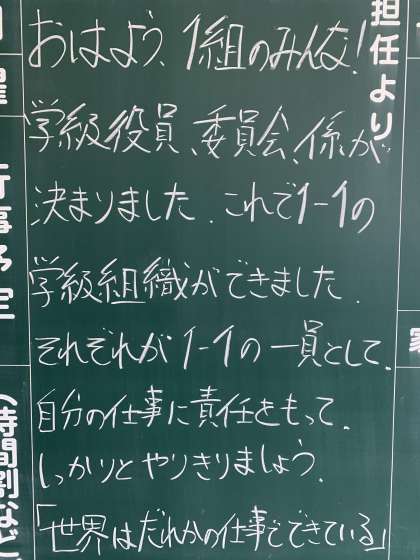 担任より
おはよう、1組のみんな!
学級役員、委員会、係が
決まりました。これで1-1の
学級組織ができました。
それぞれが1-1の一員として、
自分の仕事に責任をもって、
しっかりとやりきりましょう。
「世界はだれかの仕事でできている」
行事予定
(時間割など